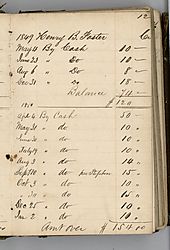 12
1849 Henry B. Foster
May 4 By Cash 10 –
June 23 " Do 10 –
Aug 6 " Do 8 –
Dec 31 " do 18 –
Balance 74 –
$ 120
Apl 4 By Cash 50 –
May 31 " do 10 "
June 30 " do 10 "
July 19 " do 10 "
Aug 3 " do 14 "
Sep 10 " do per Stephen 15 "
Oct 3 " do 10 "
30 " do 15 "
Dec 25 " do 10 "
Jan 2 " do 10 "
Amt over $ 154.00